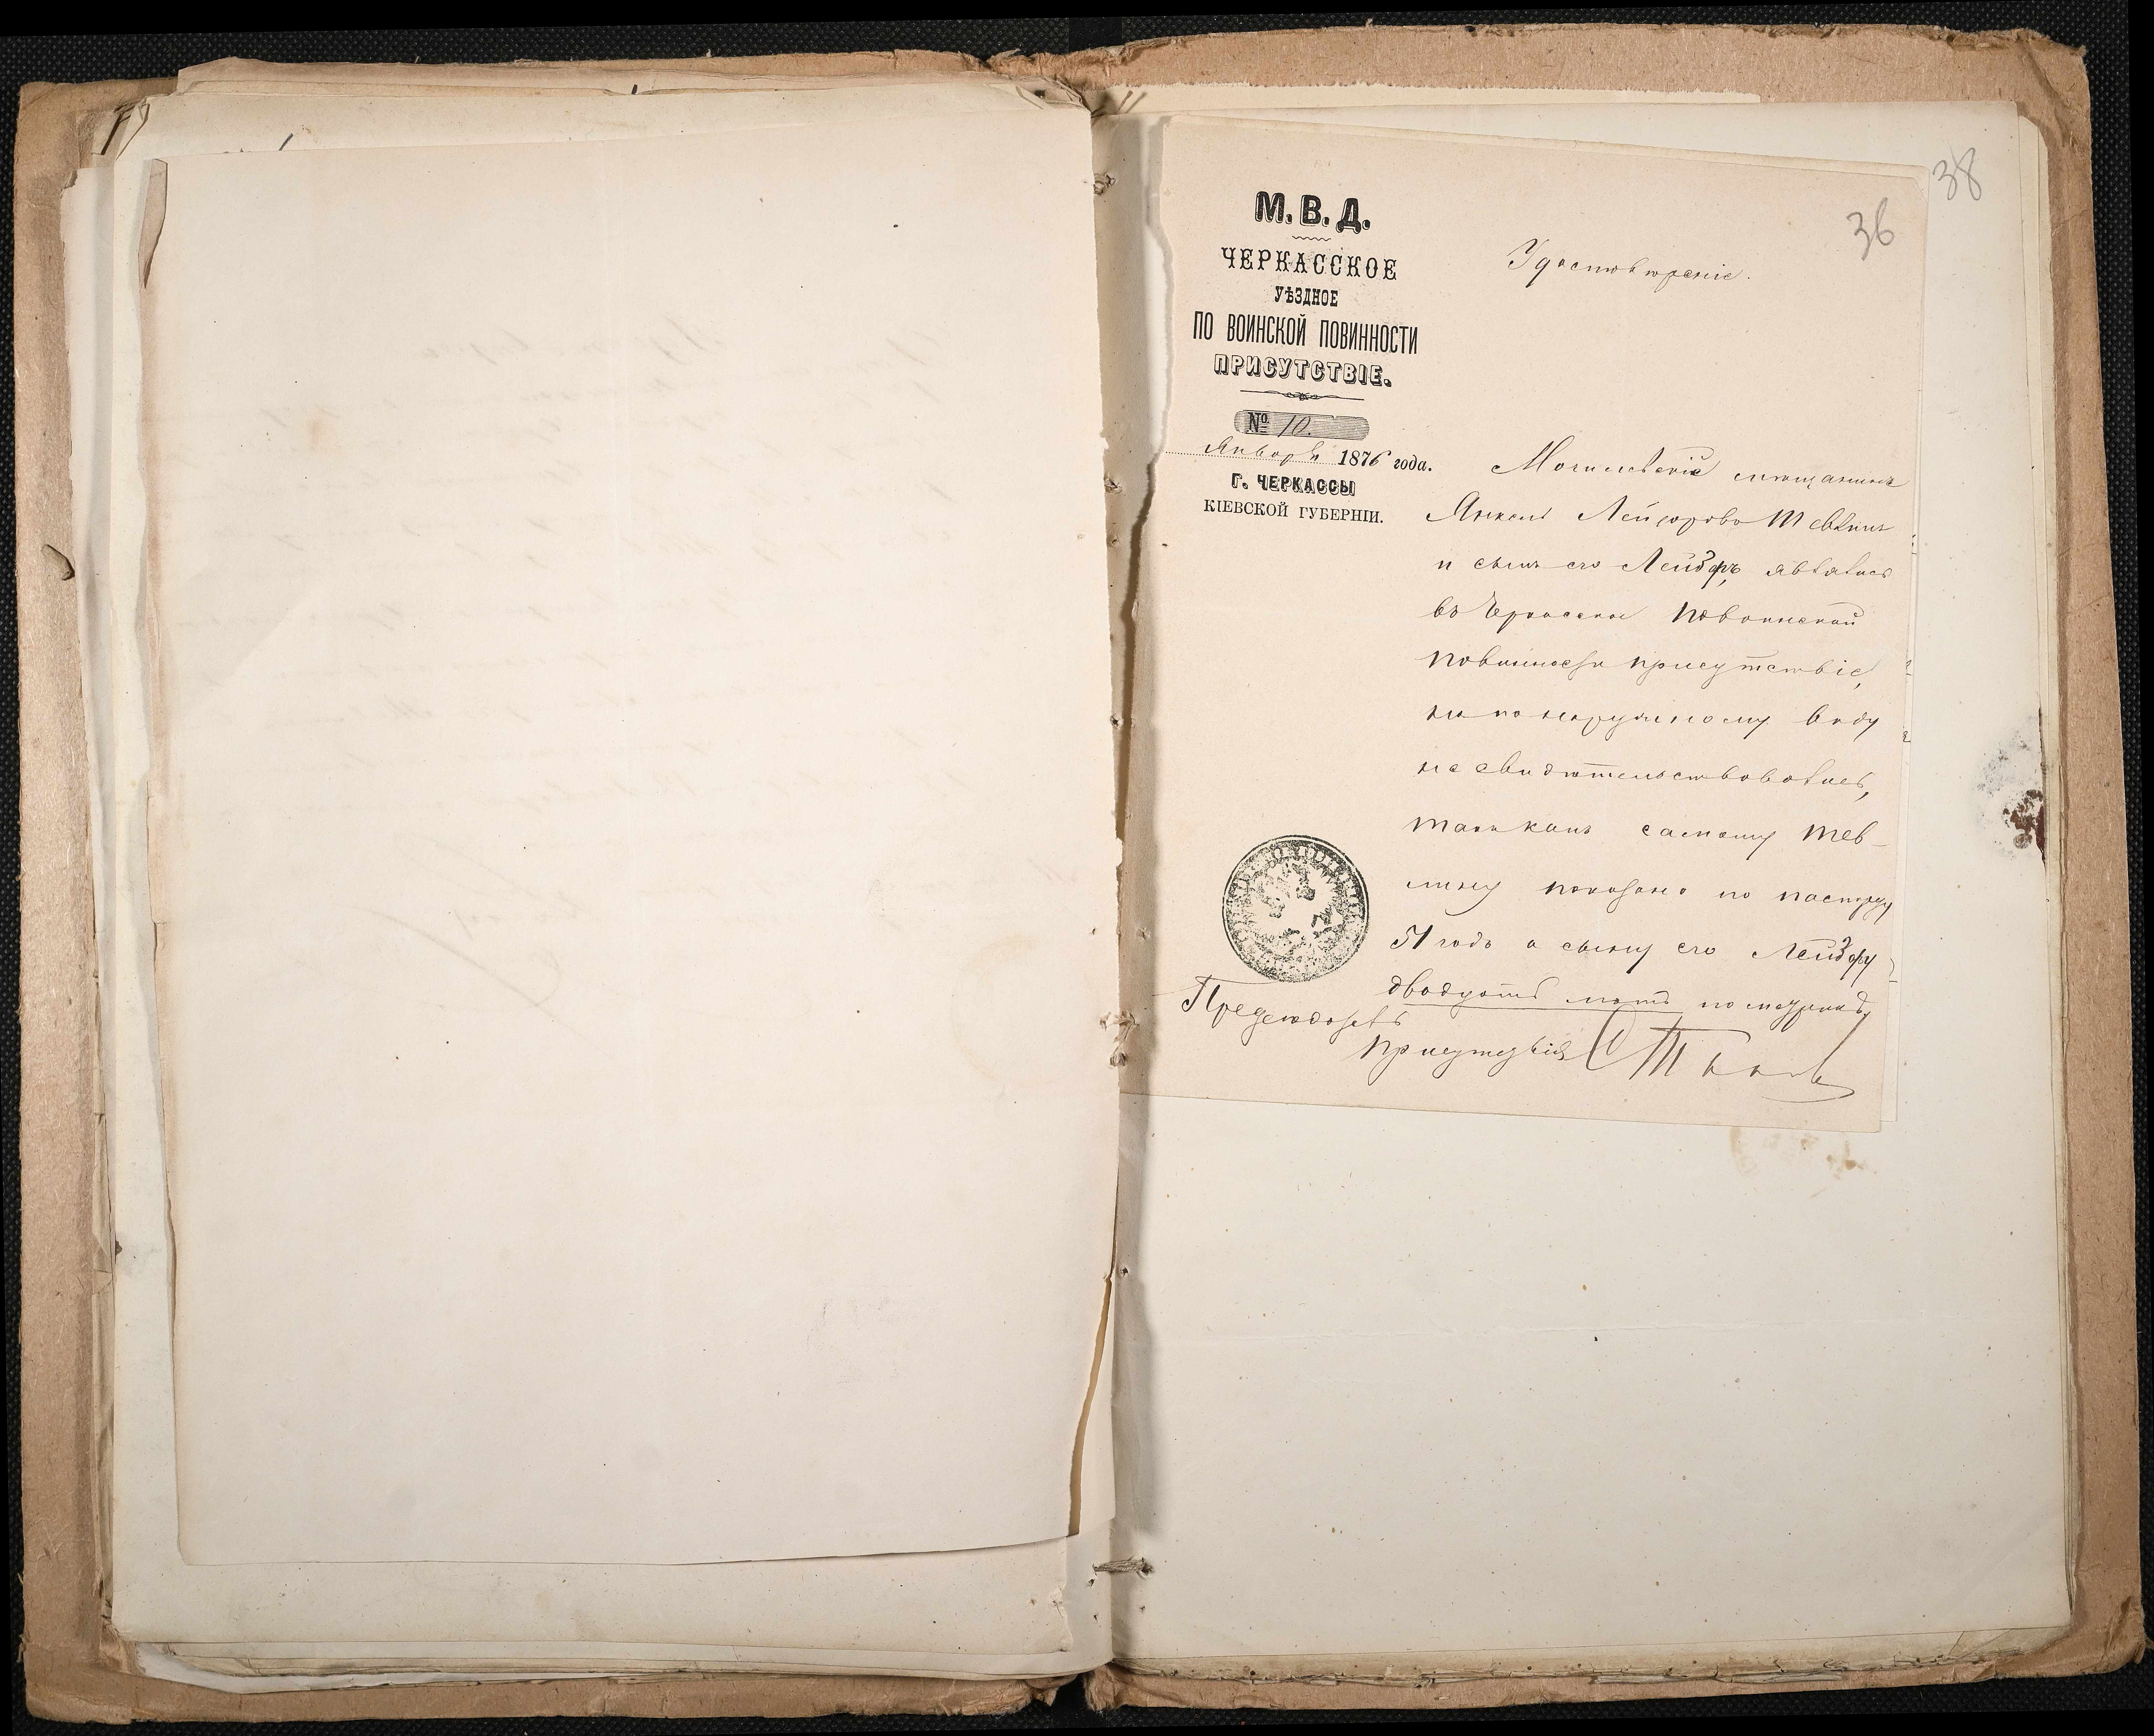 38
36
М. В. Д.
ЧЕРКАССКОЕ
УѢЗДНОЕ
ПО ВОИНСКОЙ ПОВИННОСТИ
ПРИСУТСТВІЕ.
№ 10.
Января 1876 года.
Г. ЧЕРКАССЫ
КІЕВСКОЙ ГУБЕРНІИ.
Удостовѣреніе.
Могилевскіе мѣщанинъ
Янкель Лейзоровъ Тевлинъ
и сынъ его Лейзоръ, являлись
въ Черкасское по воинской
повинности присутствіе,
но по наружному виду
не свидѣтельствовались,
такъ какъ самому Тев-
лину показано по паспорту
51 годъ а сыну его Лейзору
двадцать лѣтъ
Предсѣдатель
Присутствія